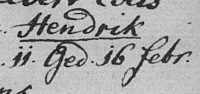 Hendrik
11. Ged. 16 febr.